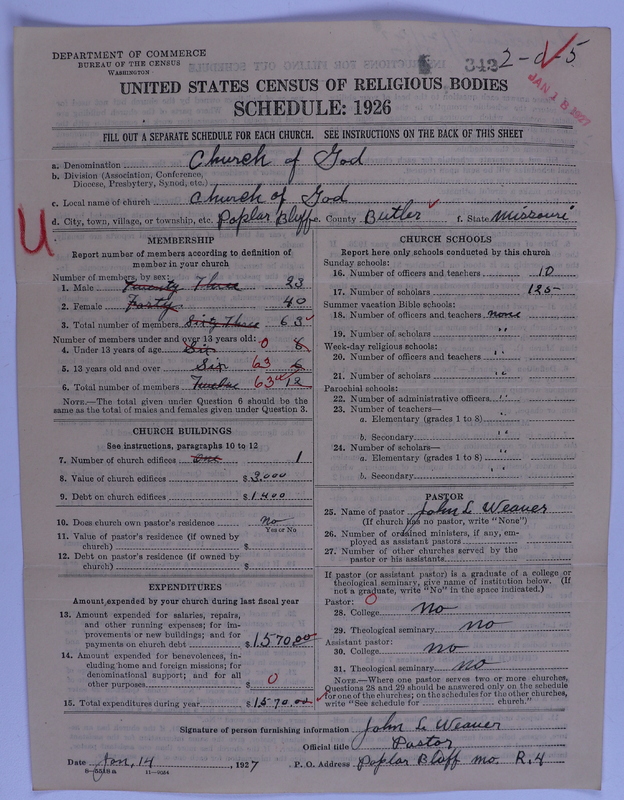 DEPARTMENT OF COMMERCE
BUREAU OF THE CENSUS
WASHINGTON
342 2-d-5
JAN 18 1927
UNITED STATES CENSUS OF RELIGIOUS BODIES
SCHEDULE: 1926
FILL OUT A SEPARATE SCHEDULE FOR EACH CHURCH. SEE INSTRUCTIONS ON THE BACK OF THIS SHEET
a. Denomination Church of God
b. Division (Association, Conference,
Diocese, Presbytery, Synod, etc.)
c. Local name of church Church of God
d. City, town, village, or township, etc. Poplar Bluff e. County Butler f. State Missouri
U
MEMBERSHIP
Report number of members according to definition of
member in your church
Number of members, by sex:
1. Male Twenty Three 23
2. Female Forty 40
3. Total number of members Sixty Three 63
Number of members under and over 13 years old:
4. Under 13 years of age Six 0 6
5. 13 years old and over Six 63 6
6. Total number of members Twelve 63 12
NOTE.—The total given under Question 6 should be
same as the total of males and females given under Question 3.
CHURCH BUILDINGS
See instructions, paragraphs 10 to 12
7. Number of church edifices One 1
8. Value of church edifices $3,000
9. Debt on church edifices $1400
10. Does church own pastor's residence No
Yes or No
11. Value of pastor's residence (if owned by
church) $
12. Debt on pastor's residence (if owned by
church) $
EXPENDITURES
Amount expended by your church during last fiscal year
13. Amount expended for salaries, repairs,
and other running expenses; for im-
provements or new buildings; and for
payments on church debt $1570.00
14. Amount expended for benevolences, in-
cluding home and foreign missions; for
denominational support; and for all
other purposes $ 0
15. Total expenditures during year $1570.00
CHURCH SCHOOLS
Report here only schools conducted by this church
Sunday schools:
16. Number of officers and teachers 10
17. Number of scholars 125
Summer vacation Bible schools:
18. Number of officers and teachers none
19. Number of scholars "
Week-day religious schools:
20. Number of officers and teachers "
21. Number of scholars "
Parochial schools:
22. Number of administrative officers "
23. Number of teachers—
a. Elementary (grades 1 to 8) "
b. Secondary "
24. Number of scholars—
a. Elementary (grades 1 to 8) "
b. Secondary "
PASTOR
25. Name of pastor John L Weaver
(If church has no pastor, write "None")
26. Number of ordained ministers, if any, em-
ployed as assistant pastors
27. Number of other churches served by the
pastor or his assistants
If pastor (or assistant pastor) is a graduate of a college or
theological seminary, give name of institution below. (If
not a graduate, write "No" in the space indicated.)
Pastor: 0
28. College no
29. Theological seminary no
Assistant pastor:
30. College no
31. Theological seminary no
NOTE.—Where one pastor serves two or more churches,
Questions 28 and 29 should be answered only on the schedule
for one of the churches; on the schedules for the other churches,
write "See schedule for church."
Signature of person furnishing information John L Weaver
Official title Pastor
Date Jan, 14, 1927 P. O. Address Poplar Bluff Mo. R.4
8—5518a 11—9054